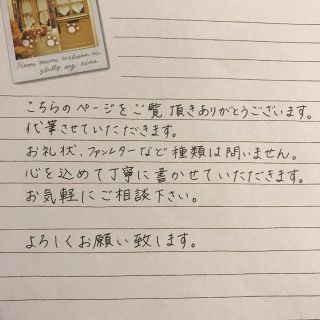 Home means welcome us
こちらのページをご覧頂きありがとうございます。
代筆させていただきます。
お礼状、ファンレターなど種類は問いません。
心を込めて丁寧に書かせていただきます。
お気軽にご相談下さい。
よろしくお願い致します。